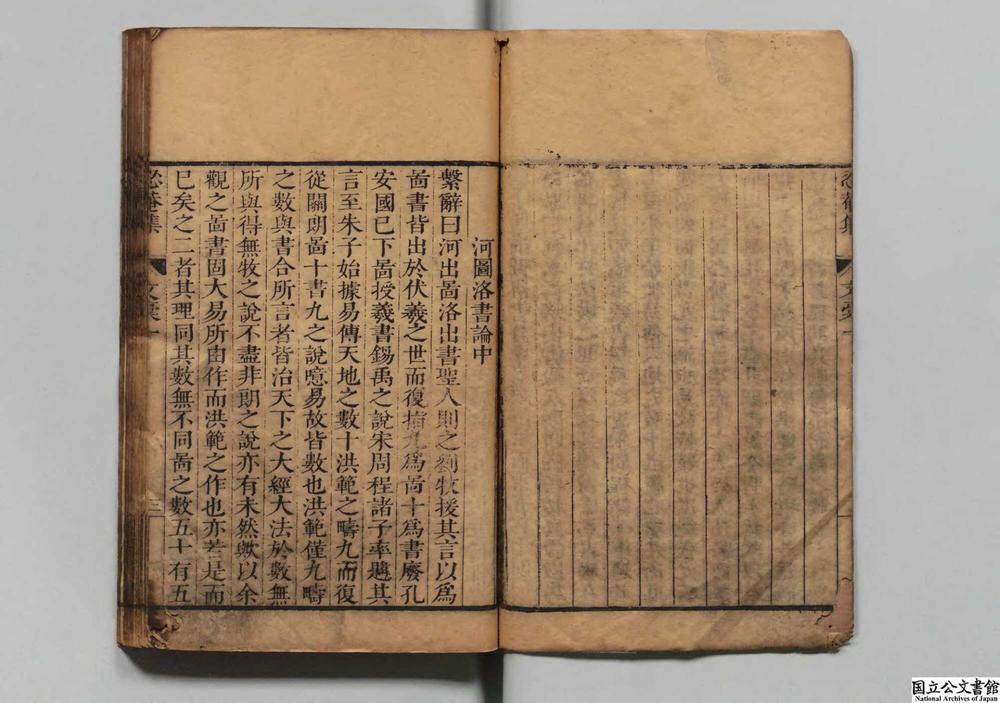 河圖洛書論中
繫辭曰河出啚洛出書聖人則之劉牧援其言以爲
啚書皆出於伏羲之世而復指九爲啚十爲書廢孔
安國已下啚授羲書錫禹之說宋周程諸子率遵其
言至朱子始據易傳天地之數十洪範之疇九而復
從關朗啚十書九之說噫易故皆數也洪範僅九疇
之數與書合所言者皆治天下之大經大法於數無
所與得無牧之說不盡非朗之說亦有未然歟以余
觀之啚書固大易所由作而洪範之作也亦若是而
已矣之二者其理同其數無不同啚之數五十有五
忍菴集
文稾一
三
国立公文書館
National Archives of Japan